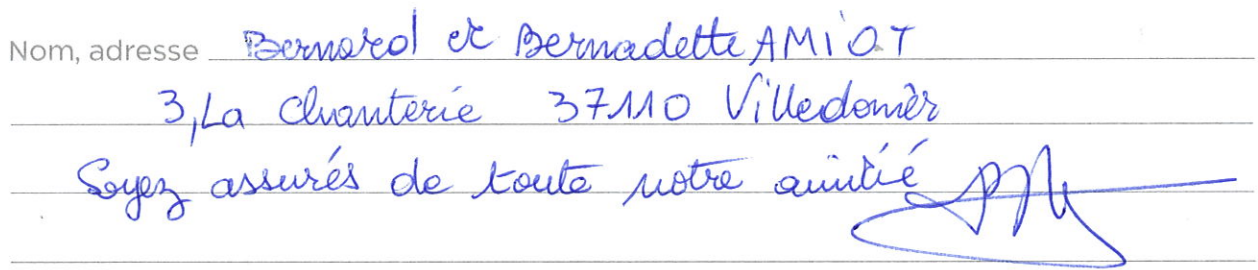 Nom, adresse Bernard et Bernadette AMIOT
3, La Chanterie 37110 Villedomèr
Soyez assurés de toute notre amitié